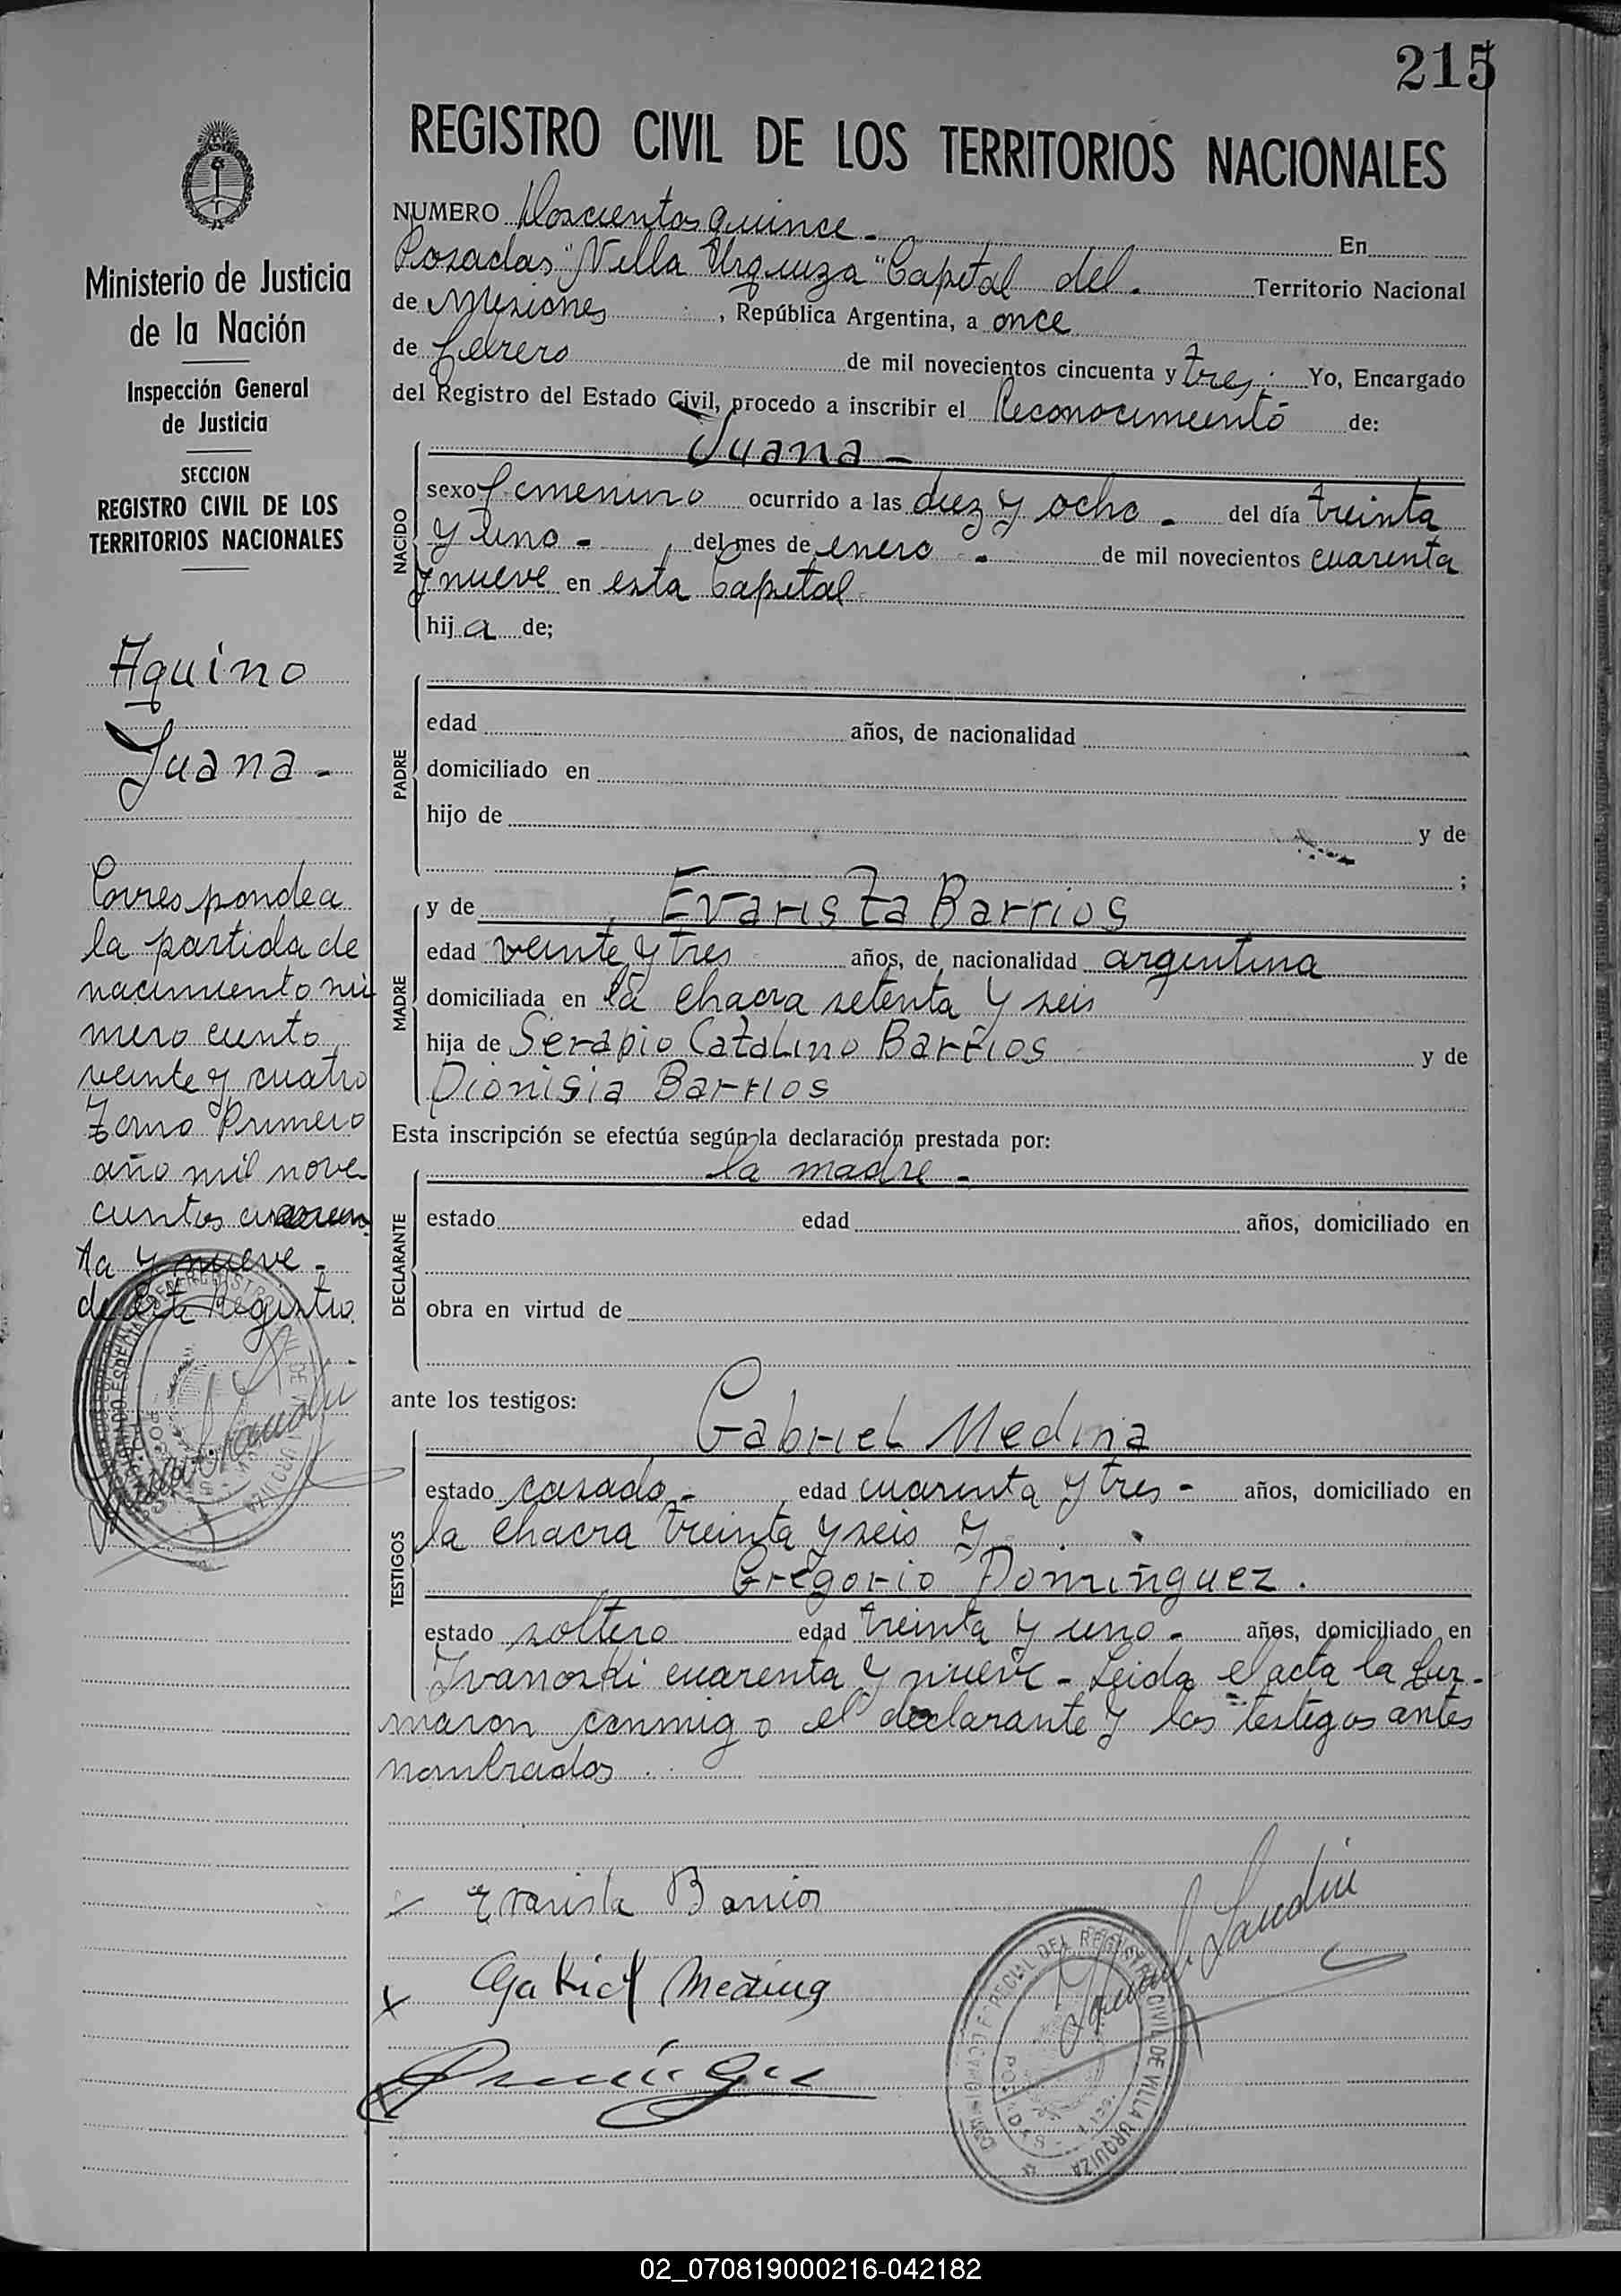 215
REGISTRO CIVIL DE LOS TERRITORIOS NACIONALES
Ministerio de Justicia
de la Nación
Inspección General
de Justicia
SECCION
REGISTRO CIVIL DE LOS
TERRITORIOS NACIONALES
Aquino
Juana -
Corresponde a
la partida de
nacimiento nú
mero ciento
veinte y cuatro
Tomo Primero
año mil nove
cientos cuaren
ta y nueve -
de este Registro.
NUMERO Doscientos quince - En
Posadas "Villa Urquiza" Capital del. Territorio Nacional
de Misiones, República Argentina, a once
de febrero de mil novecientos cincuenta y tres. Yo, Encargado
del Registro del Estado Civil, procedo a inscribir el Reconocimiento de:
Juana -
NACIDO
sexo femenino ocurrido a las diez y ocho - del día treinta
y uno - del mes de enero - de mil novecientos cuarenta
y nueve en esta Capital
hija de;
PADRE
edad años, de nacionalidad
domiciliado en
hijo de y de
;
MADRE
y de Evarista Barrios
edad veinte y tres años, de nacionalidad argentina
domiciliada en la chacra setenta y seis
hija de Serapio Catalino Barrios y de
Dionisia Barrios
Esta inscripción se efectúa según la declaración prestada por:
la madre -
DECLARANTE
estado edad años, domiciliado en
obra en virtud de
ante los testigos:
TESTIGOS
Gabriel Medina
estado casado - edad cuarenta y tres - años, domiciliado en
la chacra treinta y seis y
Gregorio Dominguez.
estado soltero edad treinta y uno - años, domiciliado en
Ivanoski cuarenta y nueve - Leida el acta la fir-
maron conmigo el declarante y los testigos antes
nombrados
Evarista Barrios
Gabriel Medina
DEL REGISTRO CIVIL DE VILLA URQUIZA
POSADAS
02_070819000216-042182